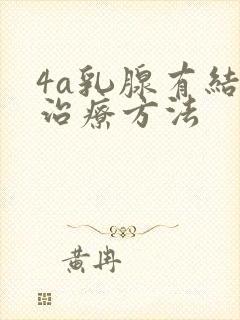 4a乳腺有結
治療方法
黄冉